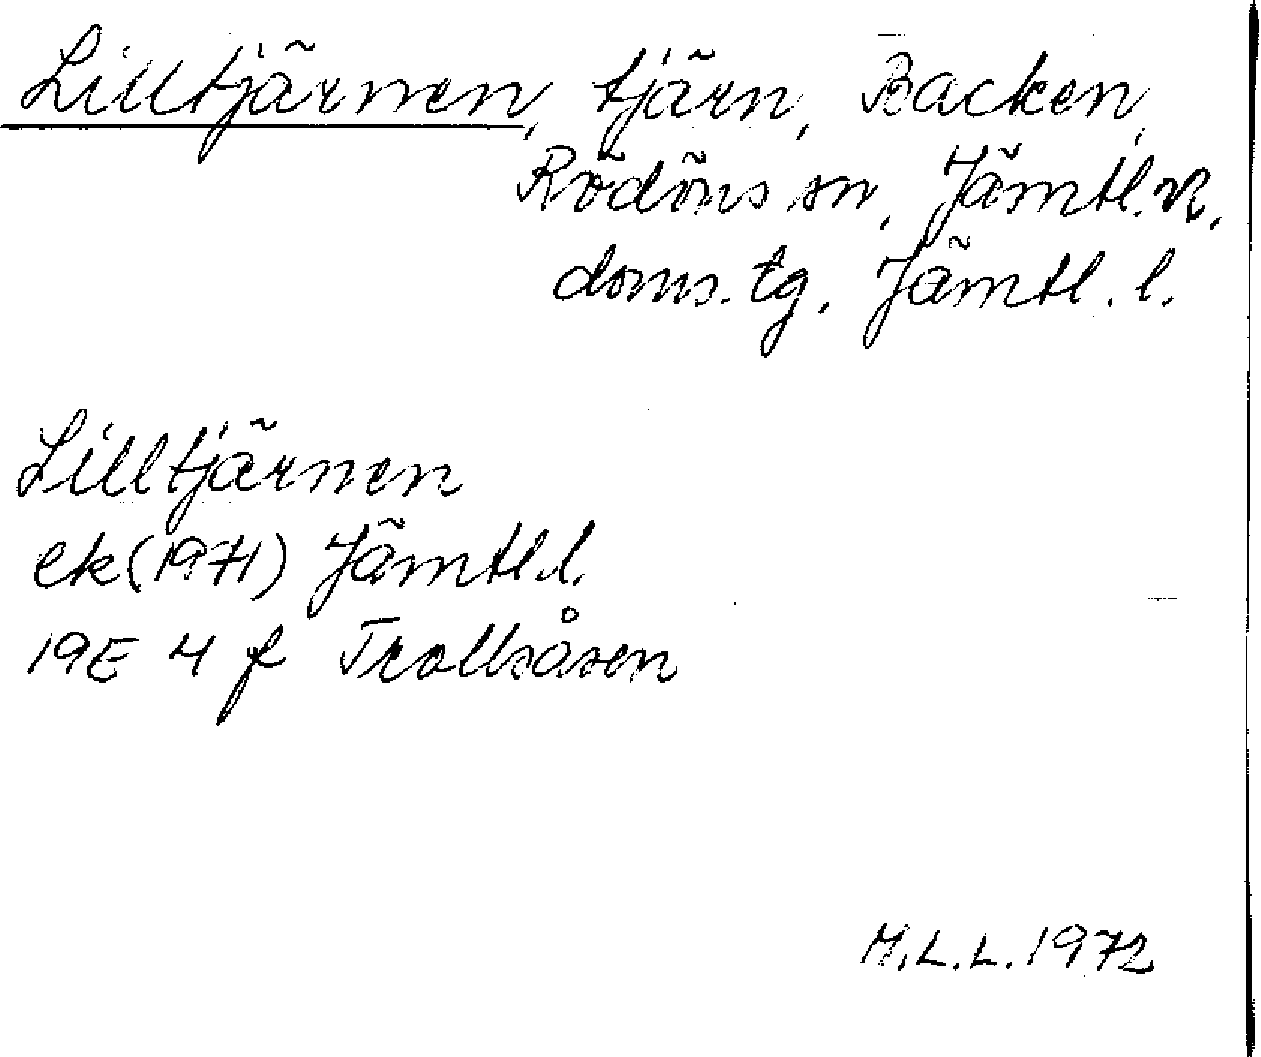 Lilltjärnen, tjärn, Backen,
Rödöns sn, Jämtl. n.
doms. tg, Jämtl. l.
Lilltjärnen
ek (1971) Jämtl.l.
19E 4 f Trollsåsen
M.L.L. 1972